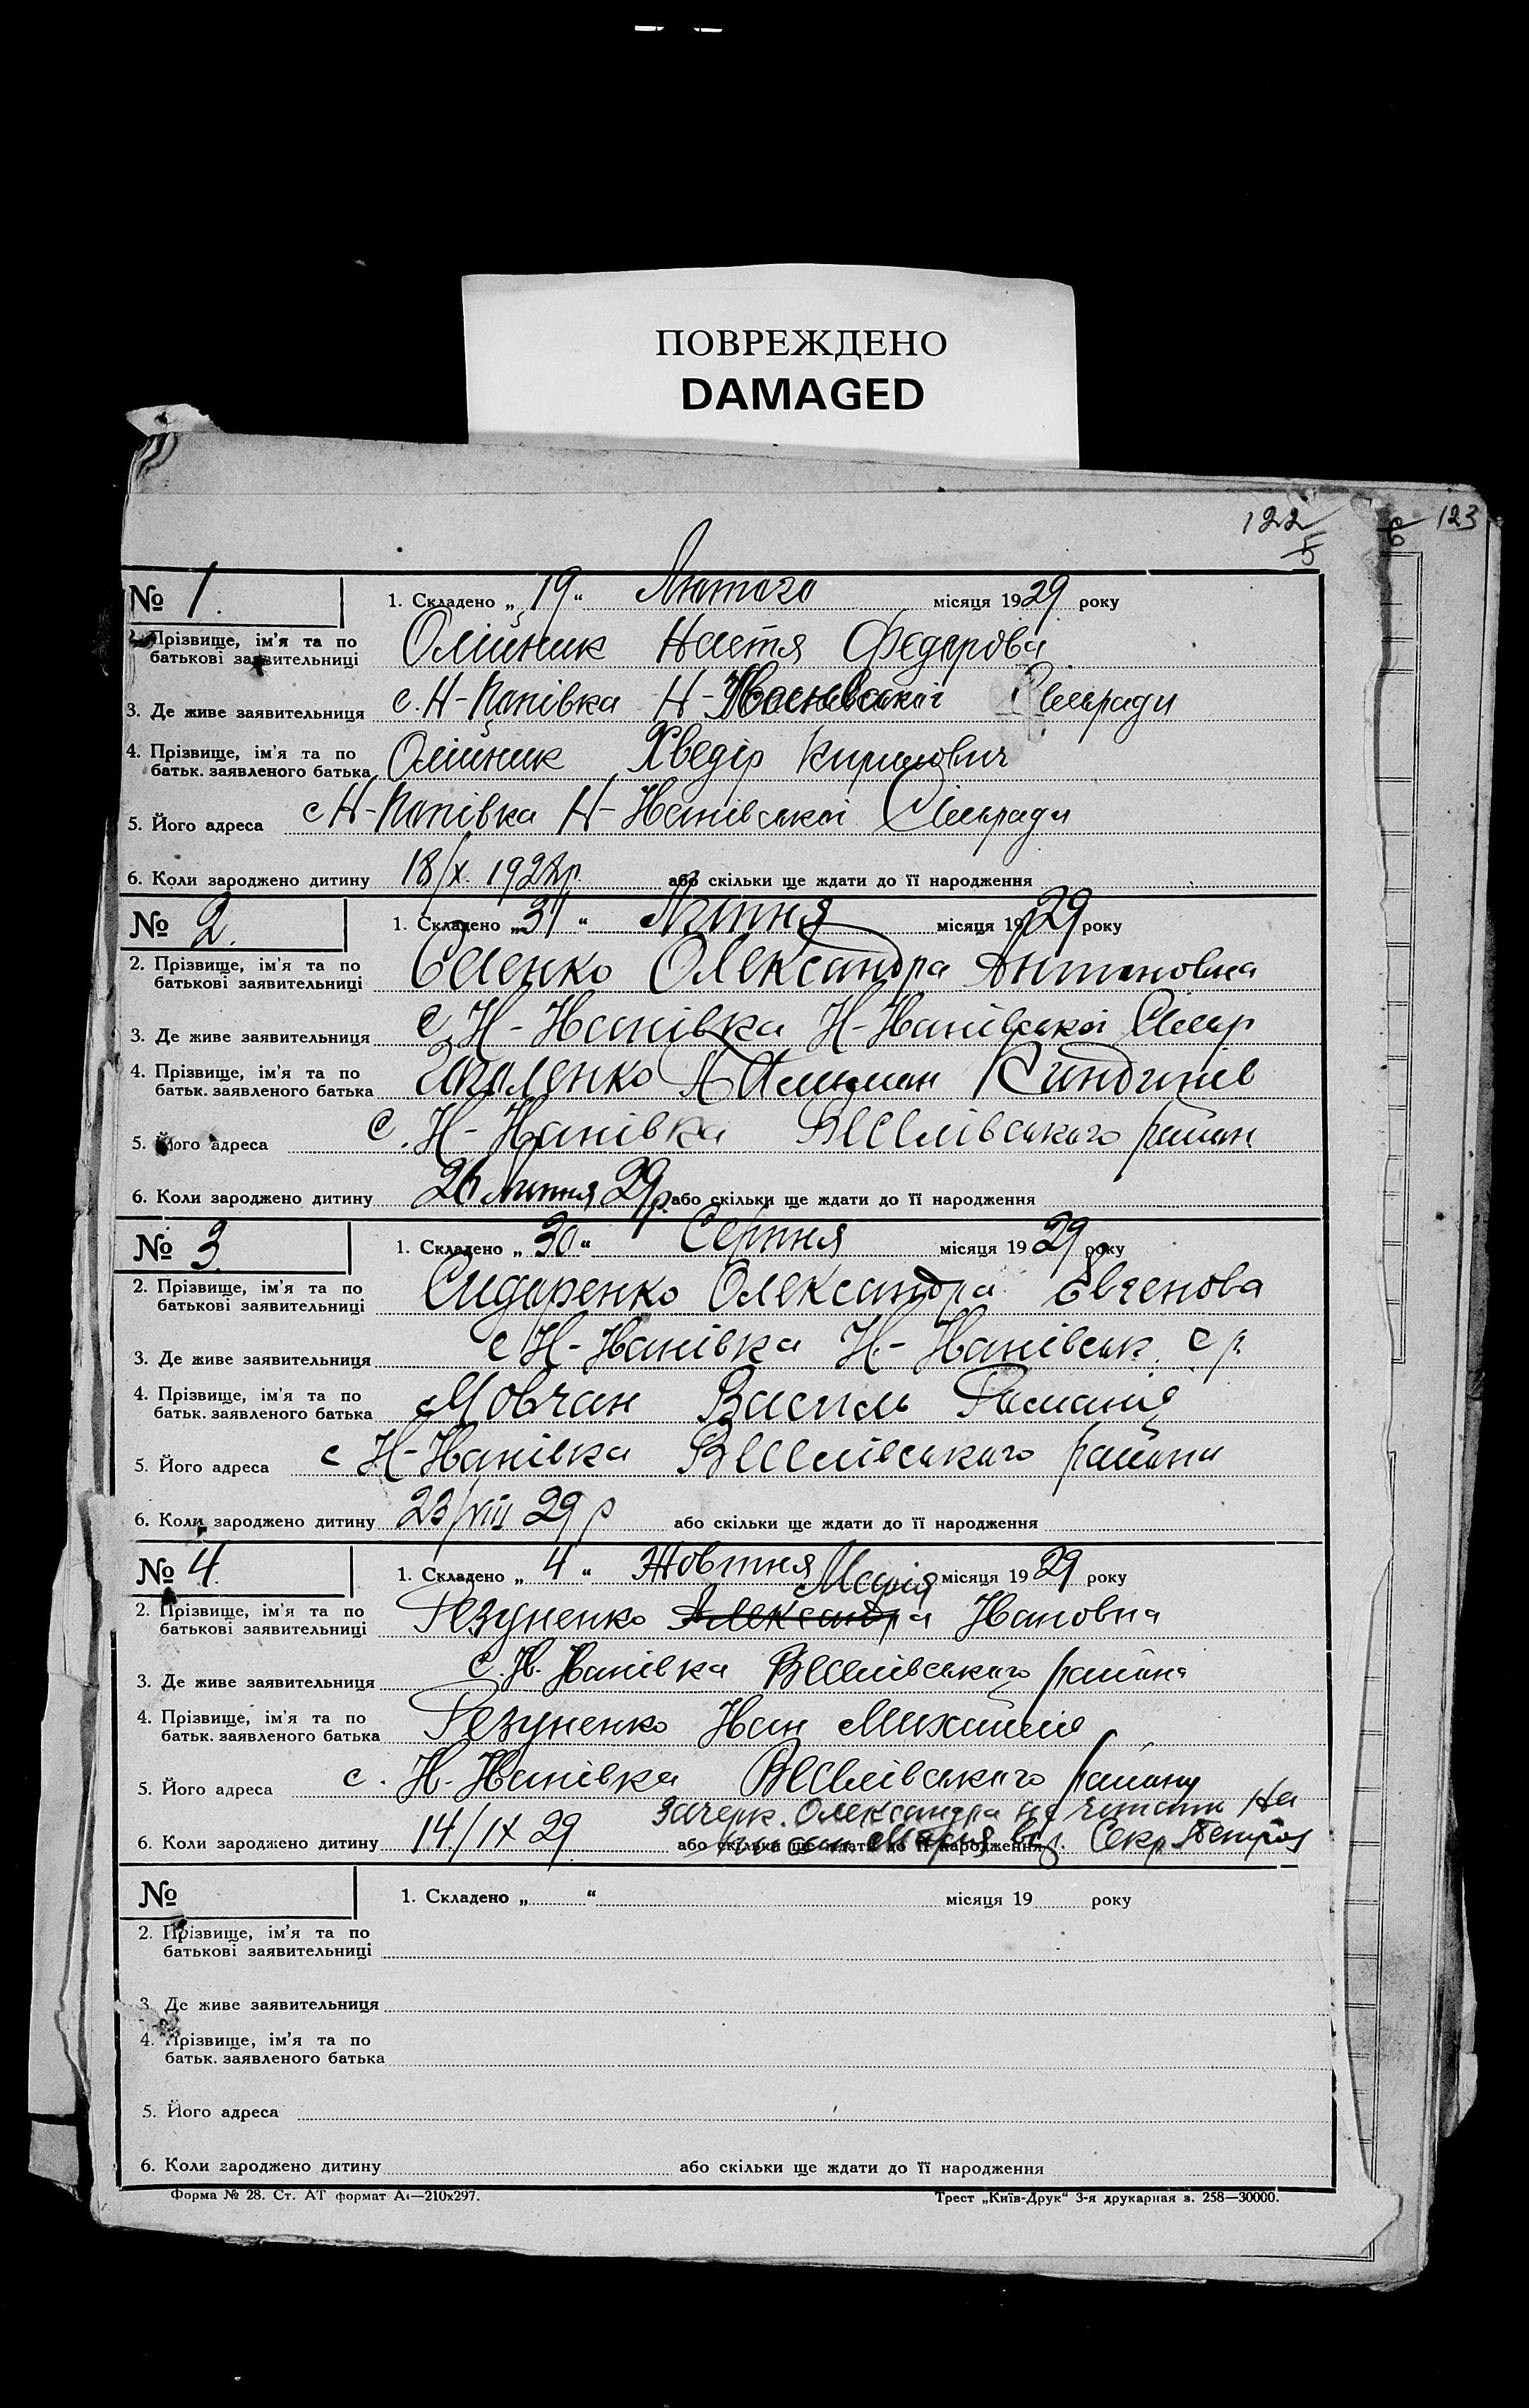 ПОВРЕЖДЕНО
DAMAGED
122
5
123
№ 1. 1. Складено „ 19 “ Лютого місяця 1929 року
2. Прізвище, ім'я та по
батькові заявительниці Олійник Настя Федорова
3. Де живе заявительниця с. Н-Нанівка Н- Сільради
4. Прізвище, ім'я та по
батьк. заявленого батька Олійник Хведір Кирилович
5. Його адреса с Н-Нанівка Н-Нанівської Сільради
6. Коли зароджено дитину 18/X. 1928р. або скільки ще ждати до її народження
№ 2. 1. Складено „ 31 “ Липня місяця 1929 року
2. Прізвище, ім'я та по
батькові заявительниці Олександра Антоновна
3. Де живе заявительниця с Н-Нанівка Н-Нанівської Сільр
4. Прізвище, ім'я та по
батьк. заявленого батька
5. Його адреса с. Н-Нанівка Веселівського район
6. Коли зароджено дитину 26 липня 29р. або скільки ще ждати до її народження
№ 3. 1. Складено „ 30 “ Серпня місяця 1929 року
2. Прізвище, ім'я та по
батькові заявительниці Сидоренко Олександра Євгенова
3. Де живе заявительниця с Н-Нанівка Н-Нанівськ. с/р.
4. Прізвище, ім'я та по
батьк. заявленого батька Мовчан Василь
5. Його адреса с Н-Нанівка Веселівського района
6. Коли зароджено дитину 23/VIII 29 р або скільки ще ждати до її народження
№ 4. 1. Складено „ 4 “ Жовтня місяця 1929 року
Марія
2. Прізвище, ім'я та по
батькові заявительниці Резуненко Александра Івановна
3. Де живе заявительниця с. Н. Нанівка Веселівського района
4. Прізвище, ім'я та по
батьк. заявленого батька Резуненко Іван
5. Його адреса с. Н-Нанівка Веселівського району
Зачерк. Олександра не читати На
6. Коли зароджено дитину 14/IX 29 або скільки ще ждати до її народження Марія Секр.
№ 1. Складено „ “ місяця 19 року
2. Прізвище, ім'я та по
батькові заявительниці
3. Де живе заявительниця
4. Прізвище, ім'я та по
батьк. заявленого батька
5. Його адреса
6. Коли зароджено дитину або скільки ще ждати до її народження
Форма № 28. Ст. АТ формат А4—210х297. Трест „Київ-Друк“ 3-я друкарная з. 258—30000.